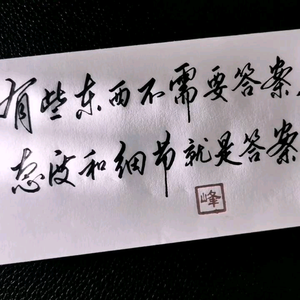 有些东西不需要答案
态度和细节就是答案
峰